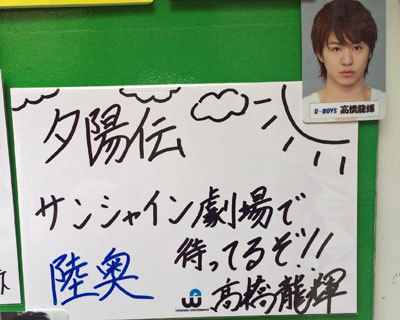 D-BOYS 高橋龍輝
夕陽伝
サンシャイン劇場で
待ってるぞ!!
陸奥
高橋龍輝